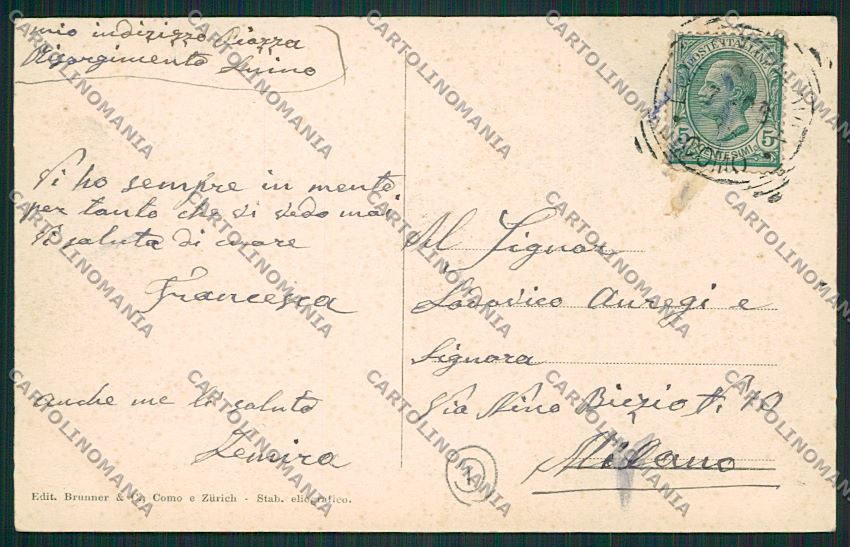 mio indirizzo Piazza
Risorgimento Luino
Vi ho sempre in mente
per tanto che vi vedo mai
Vi saluta di cuore
Francesca
anche me li saluto
Zemira
Edit. Brunner & C., Como e Zürich - Stab. eliografico.
POSTE ITALIANE
5 5
CENTESIMI
(COMO)
Al Signor
Lodovico Auregi e
Signora
Via Nino Bixio N. 30
Milano
CARTOLINOMANIA